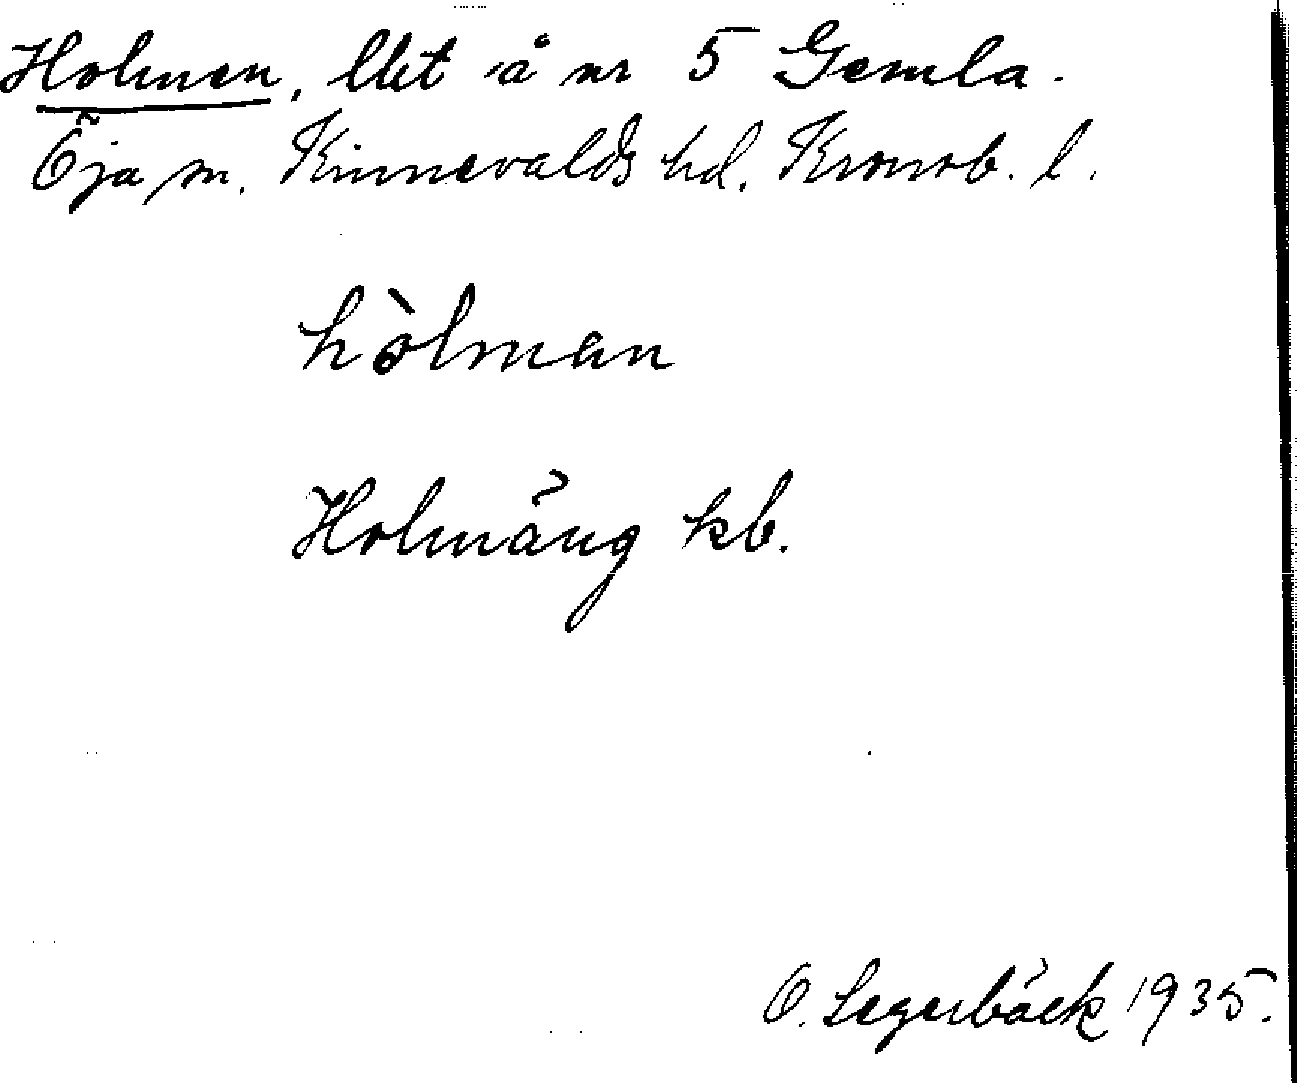 Holmen, lht å nr 5 Gemla.
Öja sn. Kinnevalds hd. Kronob. l.
hòlman
Holmäng kb.
O. Segerbäck 1935.